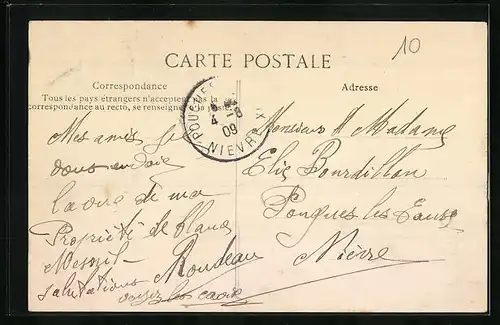 10
CARTE POSTALE
Correspondance
Tous les pays étrangers n'acceptent pas la
correspondance au recto, se renseigner à la poste
Adresse
POUGUES
8
4
09
NIEVRE
Mes amis je
vous envoie
la vue de ma
Propriété de blanc
Mesnil
Salutations Rondeau
Monsieur & Madame
Elie Bourdillon
Pougues les Eaux
Nièvre